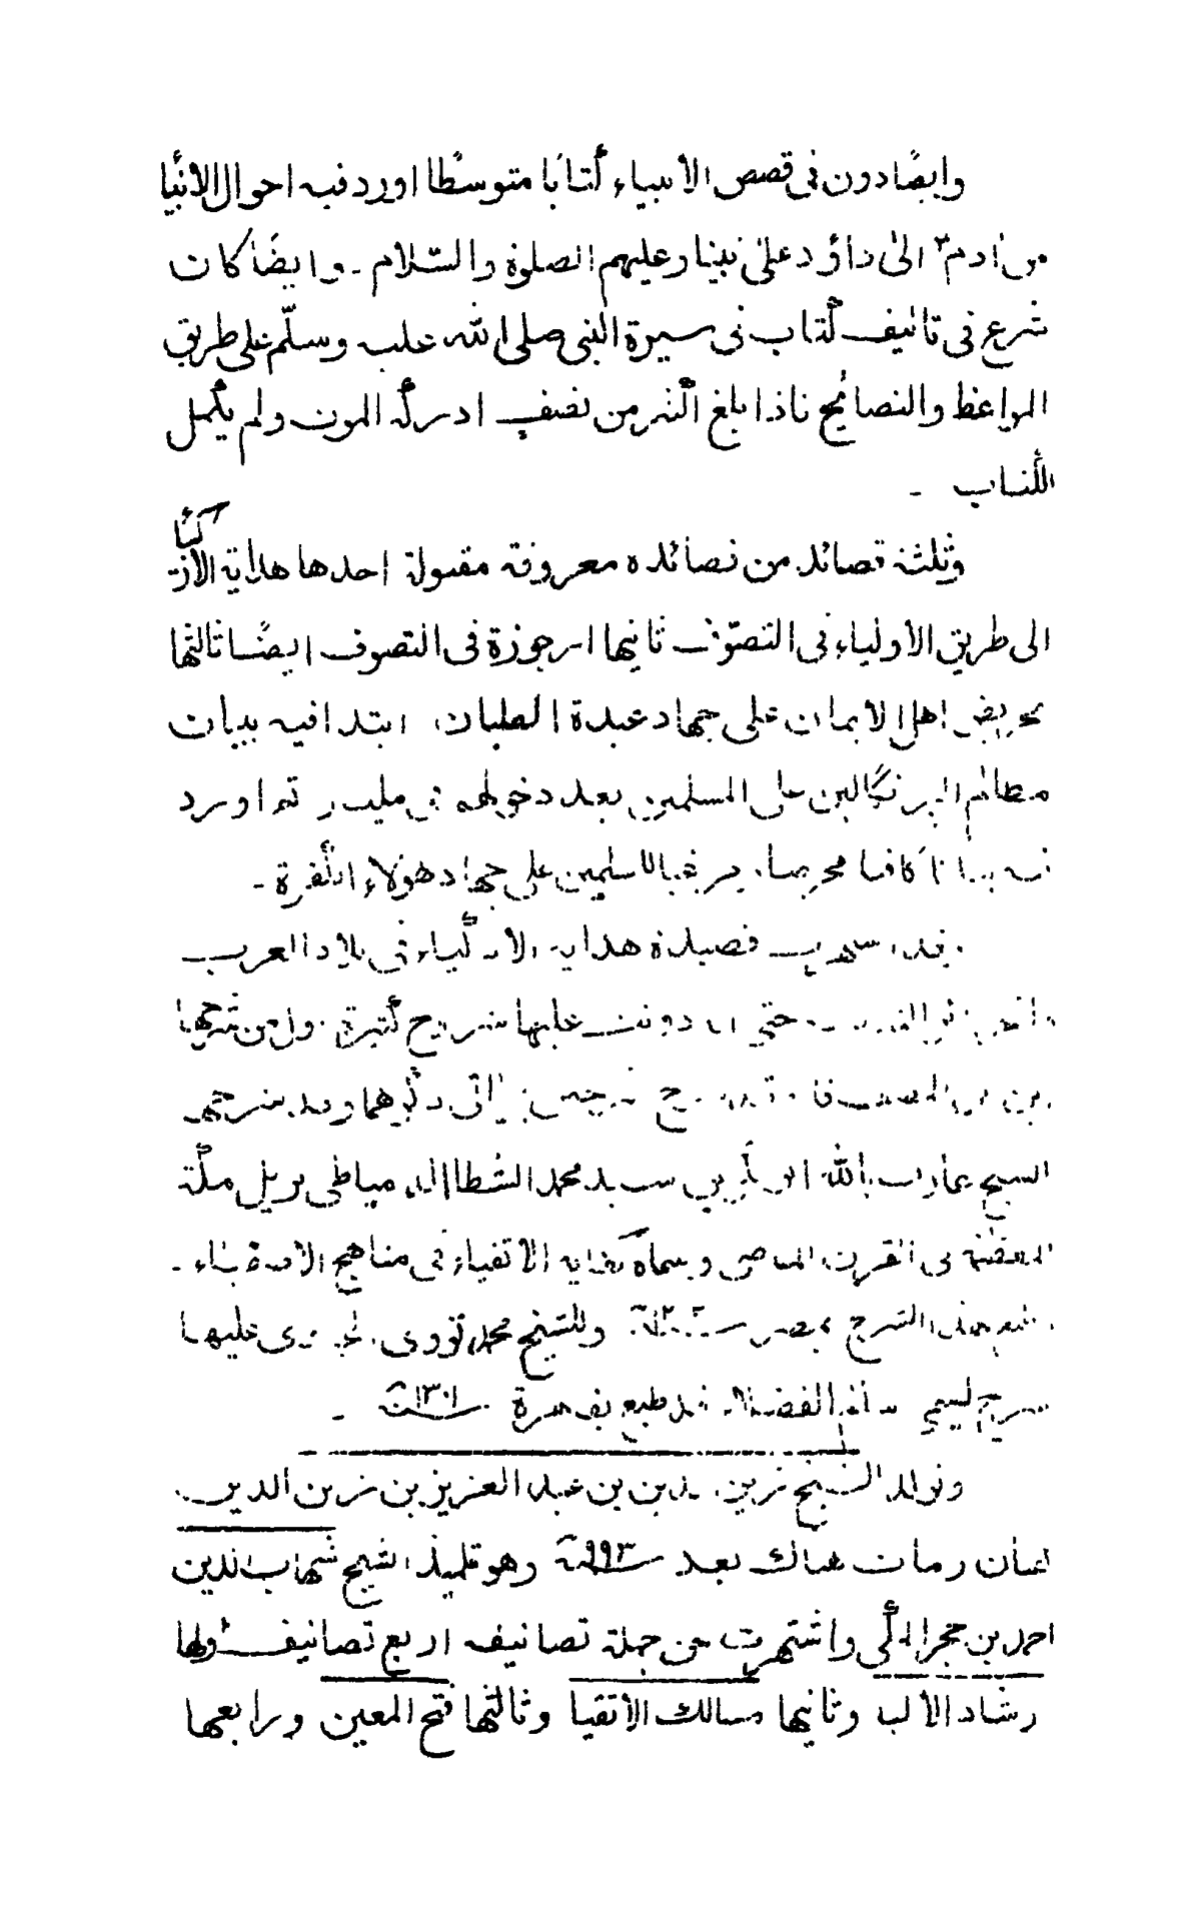 وايضًا دون فى قصص الانبياء كتابًا متوسطًا اورد فيه احوال الانبيا
من ادم الىٰ داؤد علىٰ نبينا وعليهم الصلوة والسّلام ـ وايضًا كان
شرع فى تاليف كتاب فى سيرة النبى صلى الله عليه وسلّم على طريق
المواعظ والنصائح فاذا بلغ اكثر من نصف ادركه الموت ولم يكمل
الكتاب ـ
وثلثة قصائد من قصائده معروفة مقبولة احدها هداية الاذكيا
الى طريق الاولياء فى التصوّف ثانيها ارجوزة فى التصوف ايضًا ثالثها
تحريض اهل الايمان على جهاد عبدة الصلبان ابتدا فيه ببيان
مظالم البرتكالين على المسلمين بعد دخولهم فى مليبار ثم اورد
فيه بيانا كافيا محرضا ومرغبا للمسلمين على جهاد هؤلاء الكفرة ـ
وقد اشتهرت قصيدة هداية الاذكياء فى بلاد العرب
حتى دونت عليها شروح كثيرة ومن شرحها
السيد محمد الشطا الدمياطى نزيل مكّة
المعظمة فى القرن الماضى وسماه كفاية الاتقياء فى مناهج الاصفياء ـ
طبع هذا الشرح بمصر سنة وللشيخ محمد نووى الجاوى عليها
شرح يسمى سلالم الفضلاء قد طبع بمصرة سنة ١٣٠١ ـ
وتولد الشيخ زين الدين بن عبد العزيز بن زين الدين
ومات هناك بعد سنة ٩٩٣ وهو تلميذ الشيخ شهاب الدين
احمد بن حجر المكى واشتهرت من جملة تصانيفه اربع تصانيف اولها
رشاد الالبا وثانيها مسالك الاتقيا وثالثها فتح المعين ورابعها